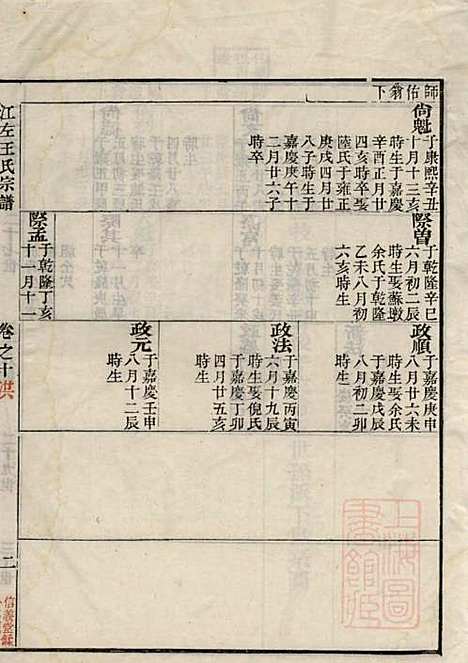 師佑翁下
尙魁
于康熙辛丑
十月十三亥
時生于嘉慶
辛酉正月廿
四亥時卒娶
陸氏于雍正
庚戌四月廿
八子時生于
嘉慶庚午十
二月廿六子
時卒
際曾
于乾隆辛巳
六月初二辰
時生娶蘇墩
余氏于乾隆
乙未八月初
六亥時生
際孟
于乾隆丁亥
十一月十二
政順
于嘉慶庚申
八月廿六未
時生娶余氏
于嘉慶戊辰
八月初二卯
時生
政法
于嘉慶丙寅
六月十九辰
時生娶倪氏
于嘉慶丁卯
四月廿五亥
時生
政元
于嘉慶壬申
八月十二辰
時生
江左王氏宗譜
卷之十
信義堂
上海圖
書館